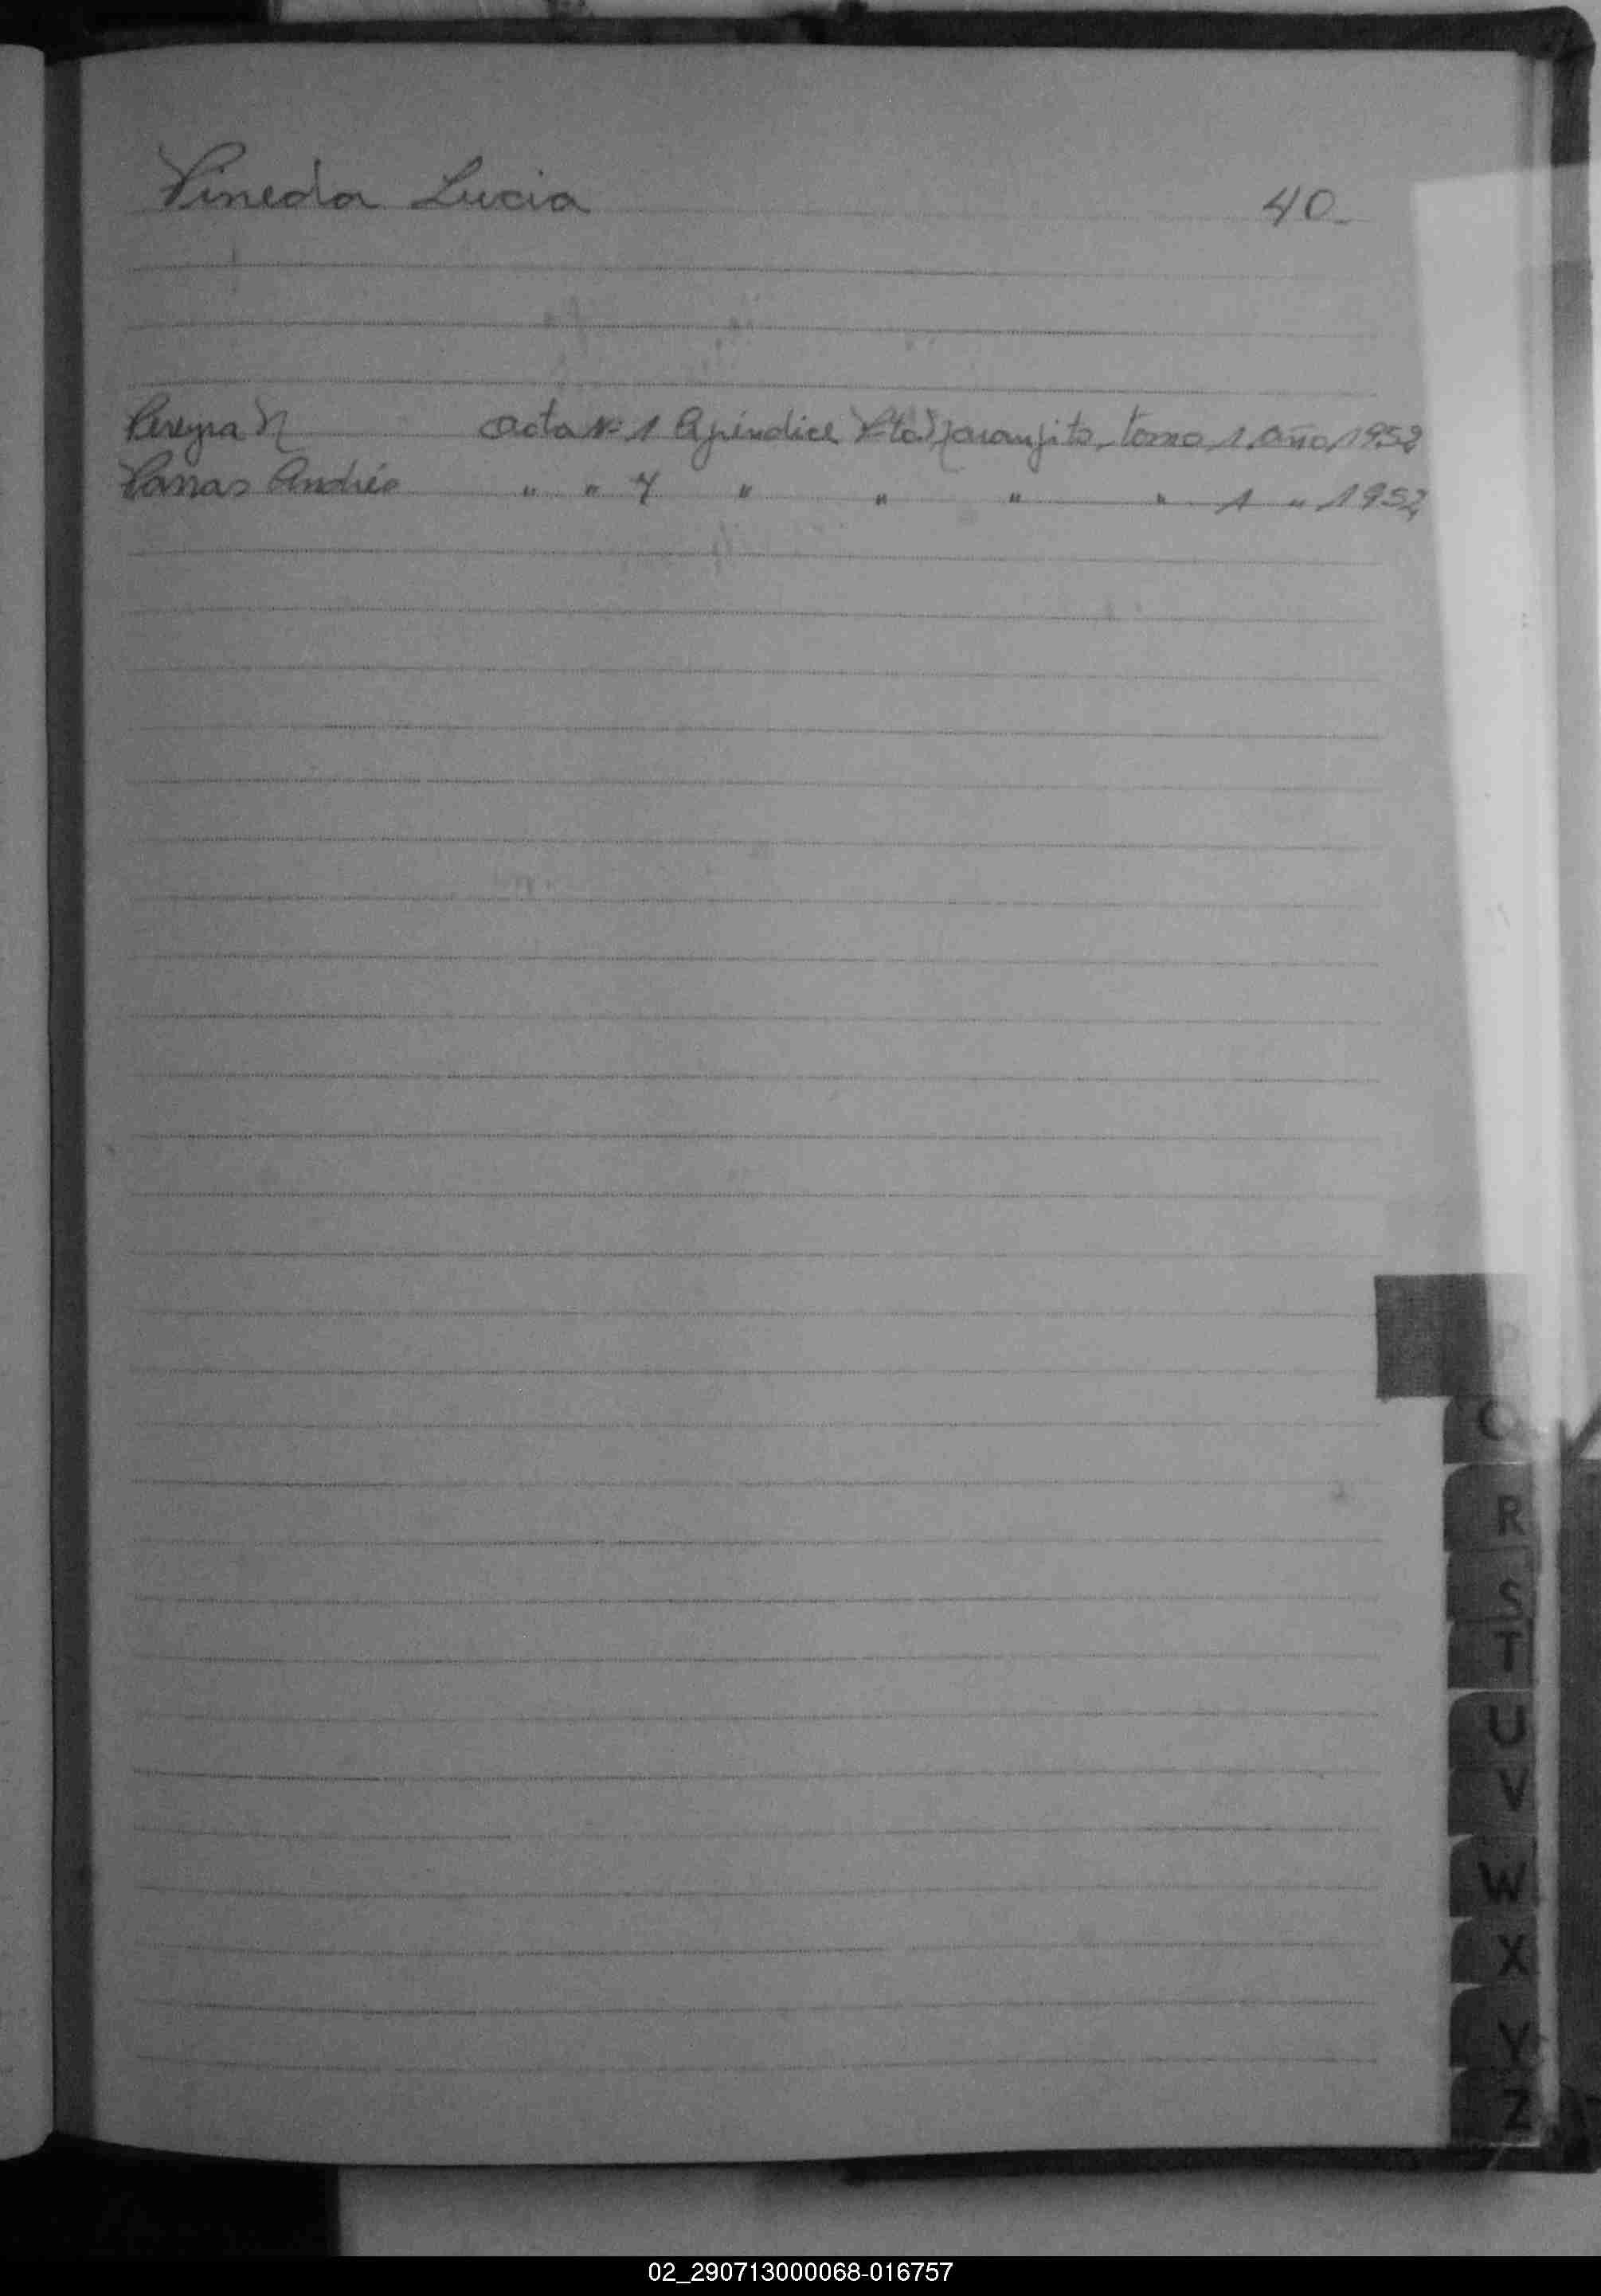 Pineda Lucia 40_
Pereyra N acta Nº 1 Apéndice Pto Naranjito, tomo 1 año 1952
Andrés " " 7 " " " " 1 " 1952
Q
R
S
T
U
V
W
X
Y
Z
02_290713000068-016757